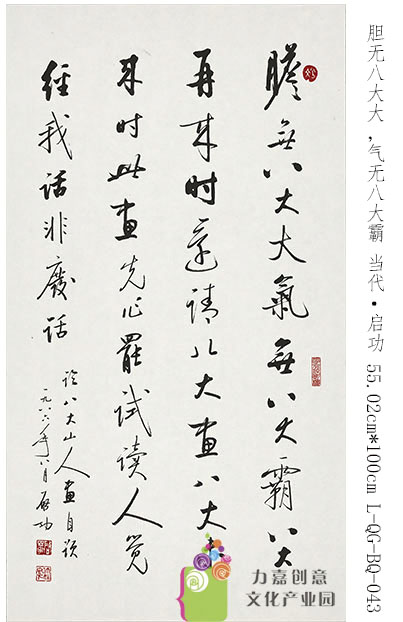 膽無八大大氣無八大霸八大
再來時還請八大畫八大未
來時此畫先作罷試讀人覺
經我話非廢話
八大山人畫自
一九八六年 月 啟功
胆无八大大,气无八大霸 当代·启功 55.02cm*100cm L-QG-BQ-043
力嘉创意
文化产业园